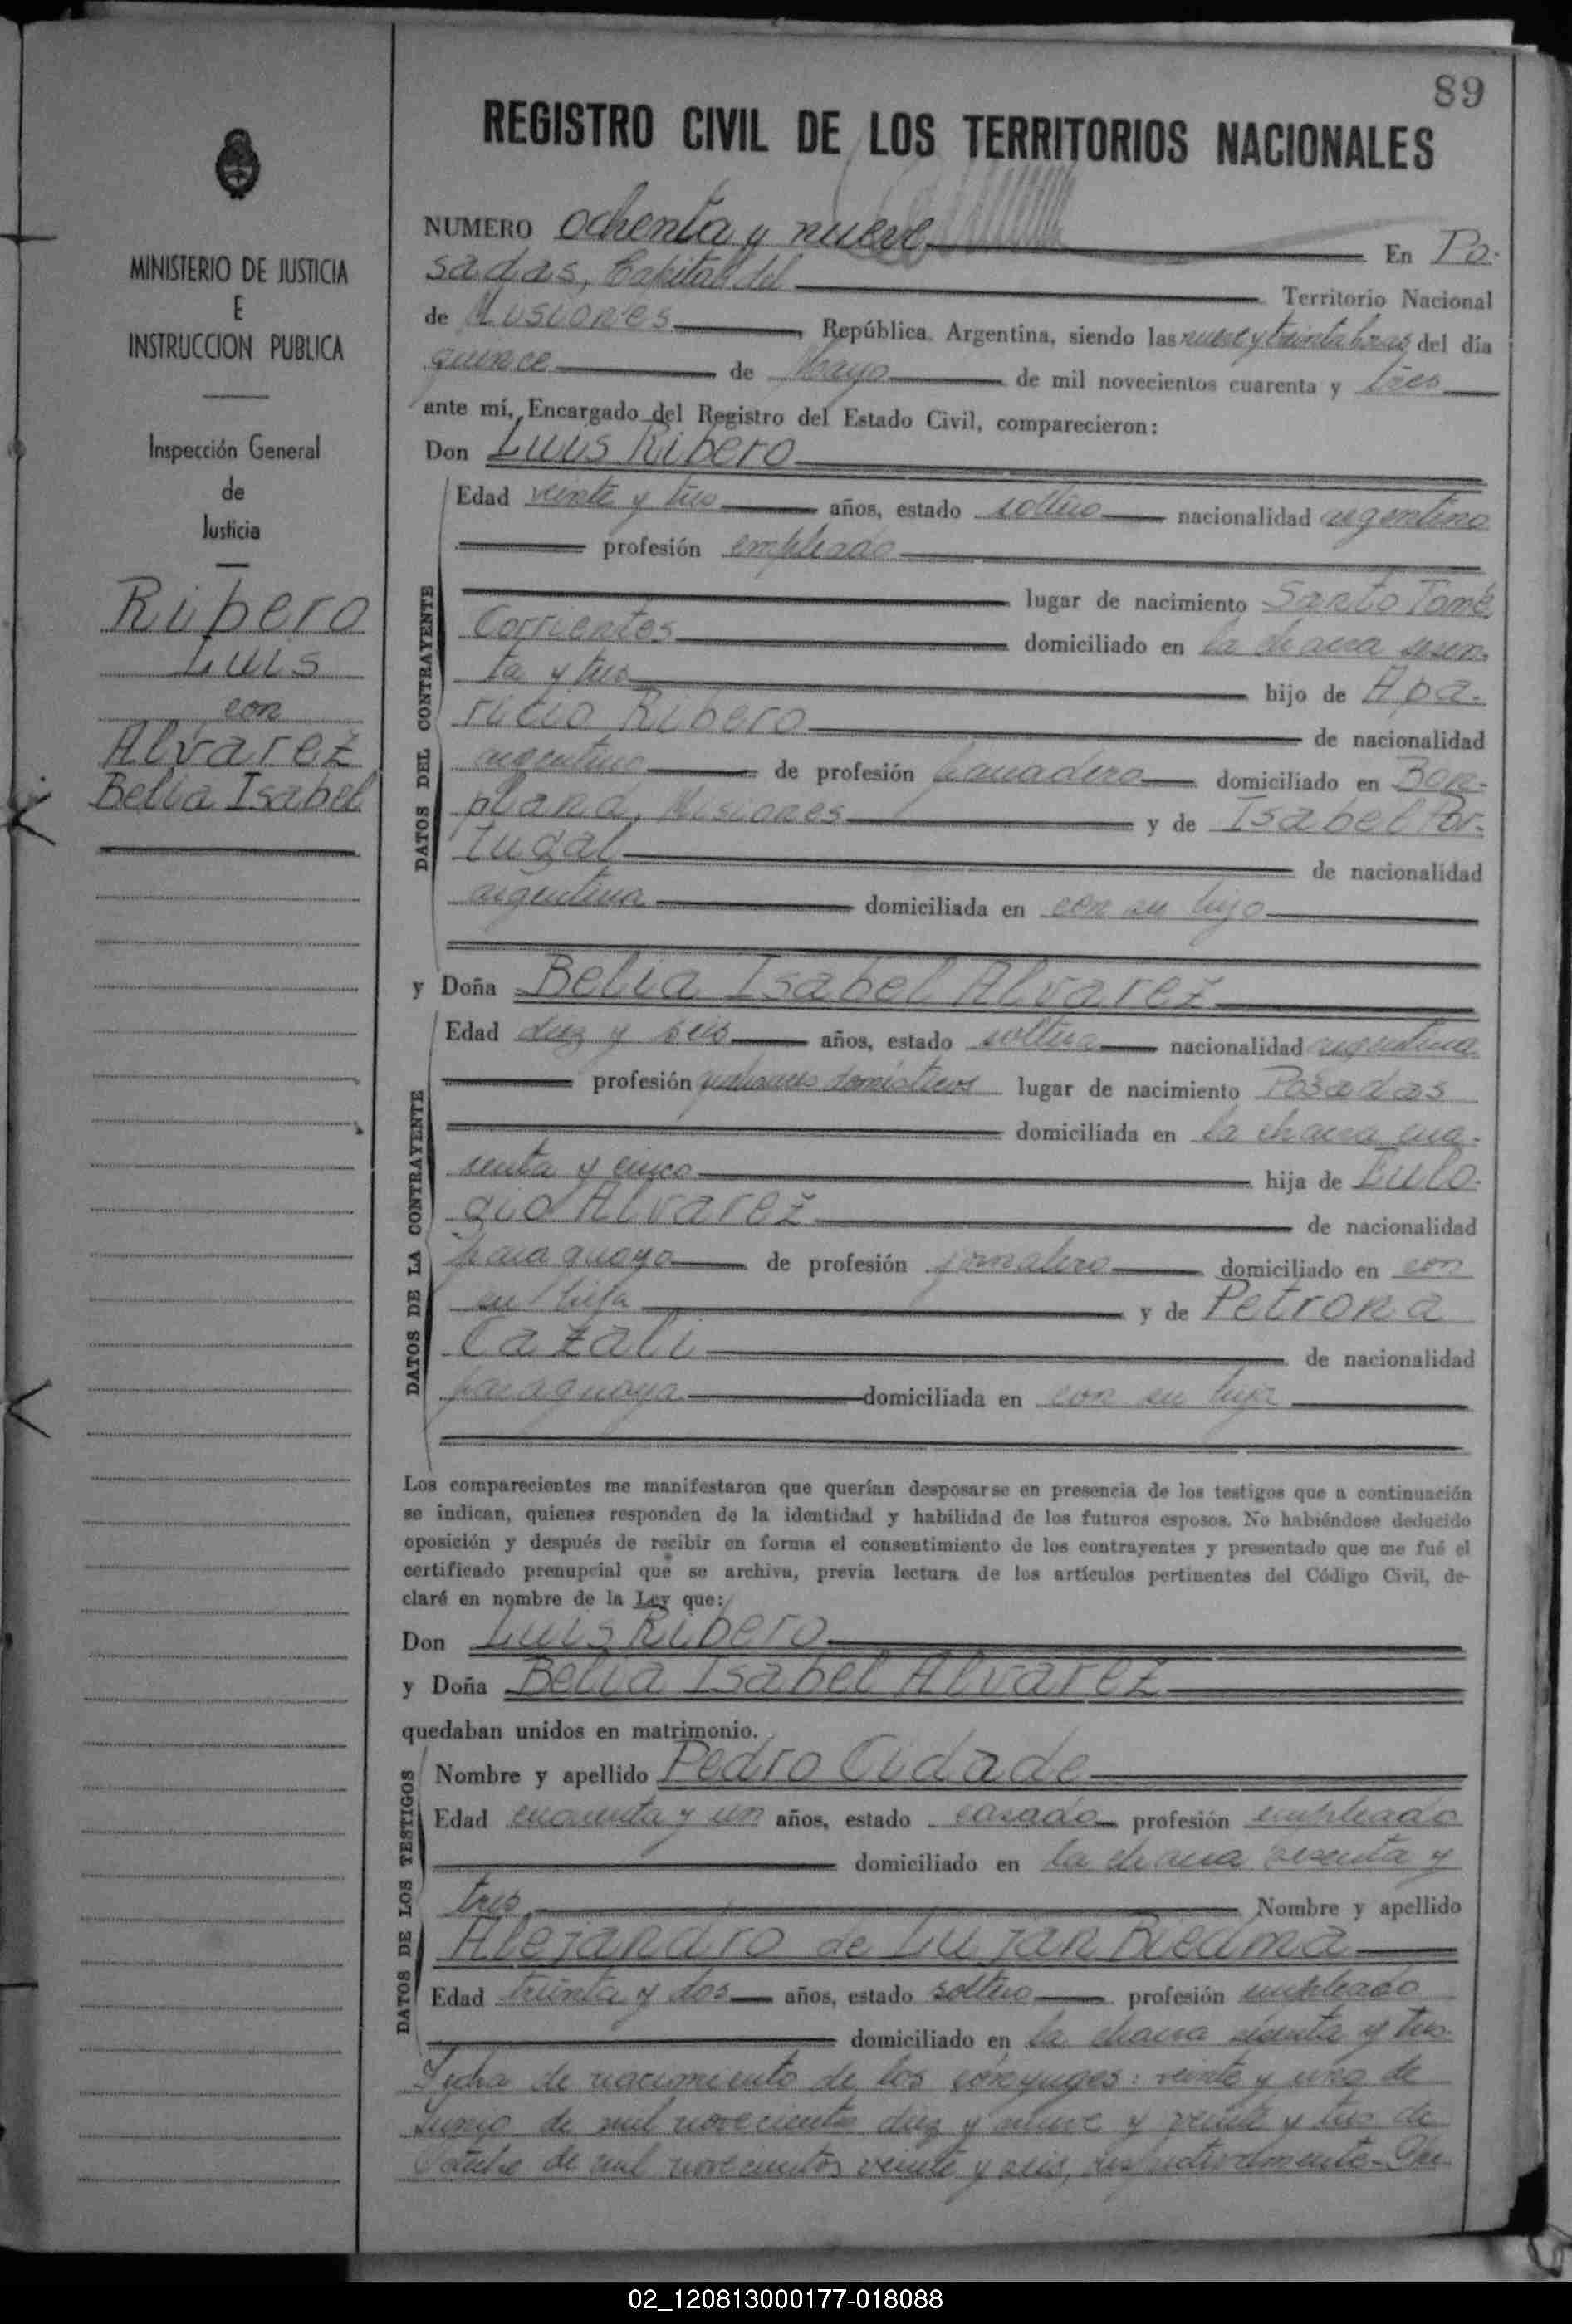 89
REGISTRO CIVIL DE LOS TERRITORIOS NACIONALES
MINISTERIO DE JUSTICIA
E
INSTRUCCION PUBLICA
Inspección General
de
Justicia
Ribero
Luis
con
Alvarez
Belia Isabel
NUMERO ochenta y nueve En Po-
sadas, Capital del Territorio Nacional
de Misiones, República Argentina, siendo las nueve y treinta horas del día
quince de Mayo de mil novecientos cuarenta y tres
ante mí, Encargado del Registro del Estado Civil, comparecieron:
Don Luis Ribero
DATOS DEL CONTRAYENTE
Edad veinte y tres años, estado soltero nacionalidad argentino
profesión empleado
lugar de nacimiento Santo Tomé
Corrientes domiciliado en la chacra sesen-
ta y tres hijo de Apa-
ricio Ribero de nacionalidad
argentino de profesión hacendero domiciliado en Bon-
pland, Misiones y de Isabel Por-
tugal de nacionalidad
argentina domiciliada en con su hijo
y Doña Belia Isabel Alvarez
DATOS DE LA CONTRAYENTE
Edad diez y seis años, estado soltera nacionalidad argentina
profesión quehaceres domésticos lugar de nacimiento Posadas
domiciliada en la chacra cua-
renta y cinco hija de Eulo-
gio Alvarez de nacionalidad
paraguayo de profesión jornalero domiciliado en con
su hija y de Petrona
Cazali de nacionalidad
paraguaya domiciliada en con su hija
Los comparecientes me manifestaron que querían desposarse en presencia de los testigos que a continuación
se indican, quienes responden de la identidad y habilidad de los futuros esposos. No habiéndose deducido
oposición y después de recibir en forma el consentimiento de los contrayentes y presentado que me fué el
certificado prenupcial que se archiva, previa lectura de los artículos pertinentes del Código Civil, de-
claré en nombre de la Ley que:
Don Luis Ribero
y Doña Belia Isabel Alvarez
quedaban unidos en matrimonio.
DATOS DE LOS TESTIGOS
Nombre y apellido Pedro Cidade
Edad cuarenta y un años, estado casado profesión empleado
domiciliado en la chacra sesenta y
tres Nombre y apellido
Alejandro de Lujan Biedma
Edad treinta y dos años, estado soltero profesión empleado
domiciliado en la chacra sesenta y tres.
Fecha de nacimiento de los cónyuges: veinte y uno de
Junio de mil novecientos diez y nueve y veinte y tres de
Octubre de mil novecientos veinte y seis, respectivamente.-
02_120813000177-018088